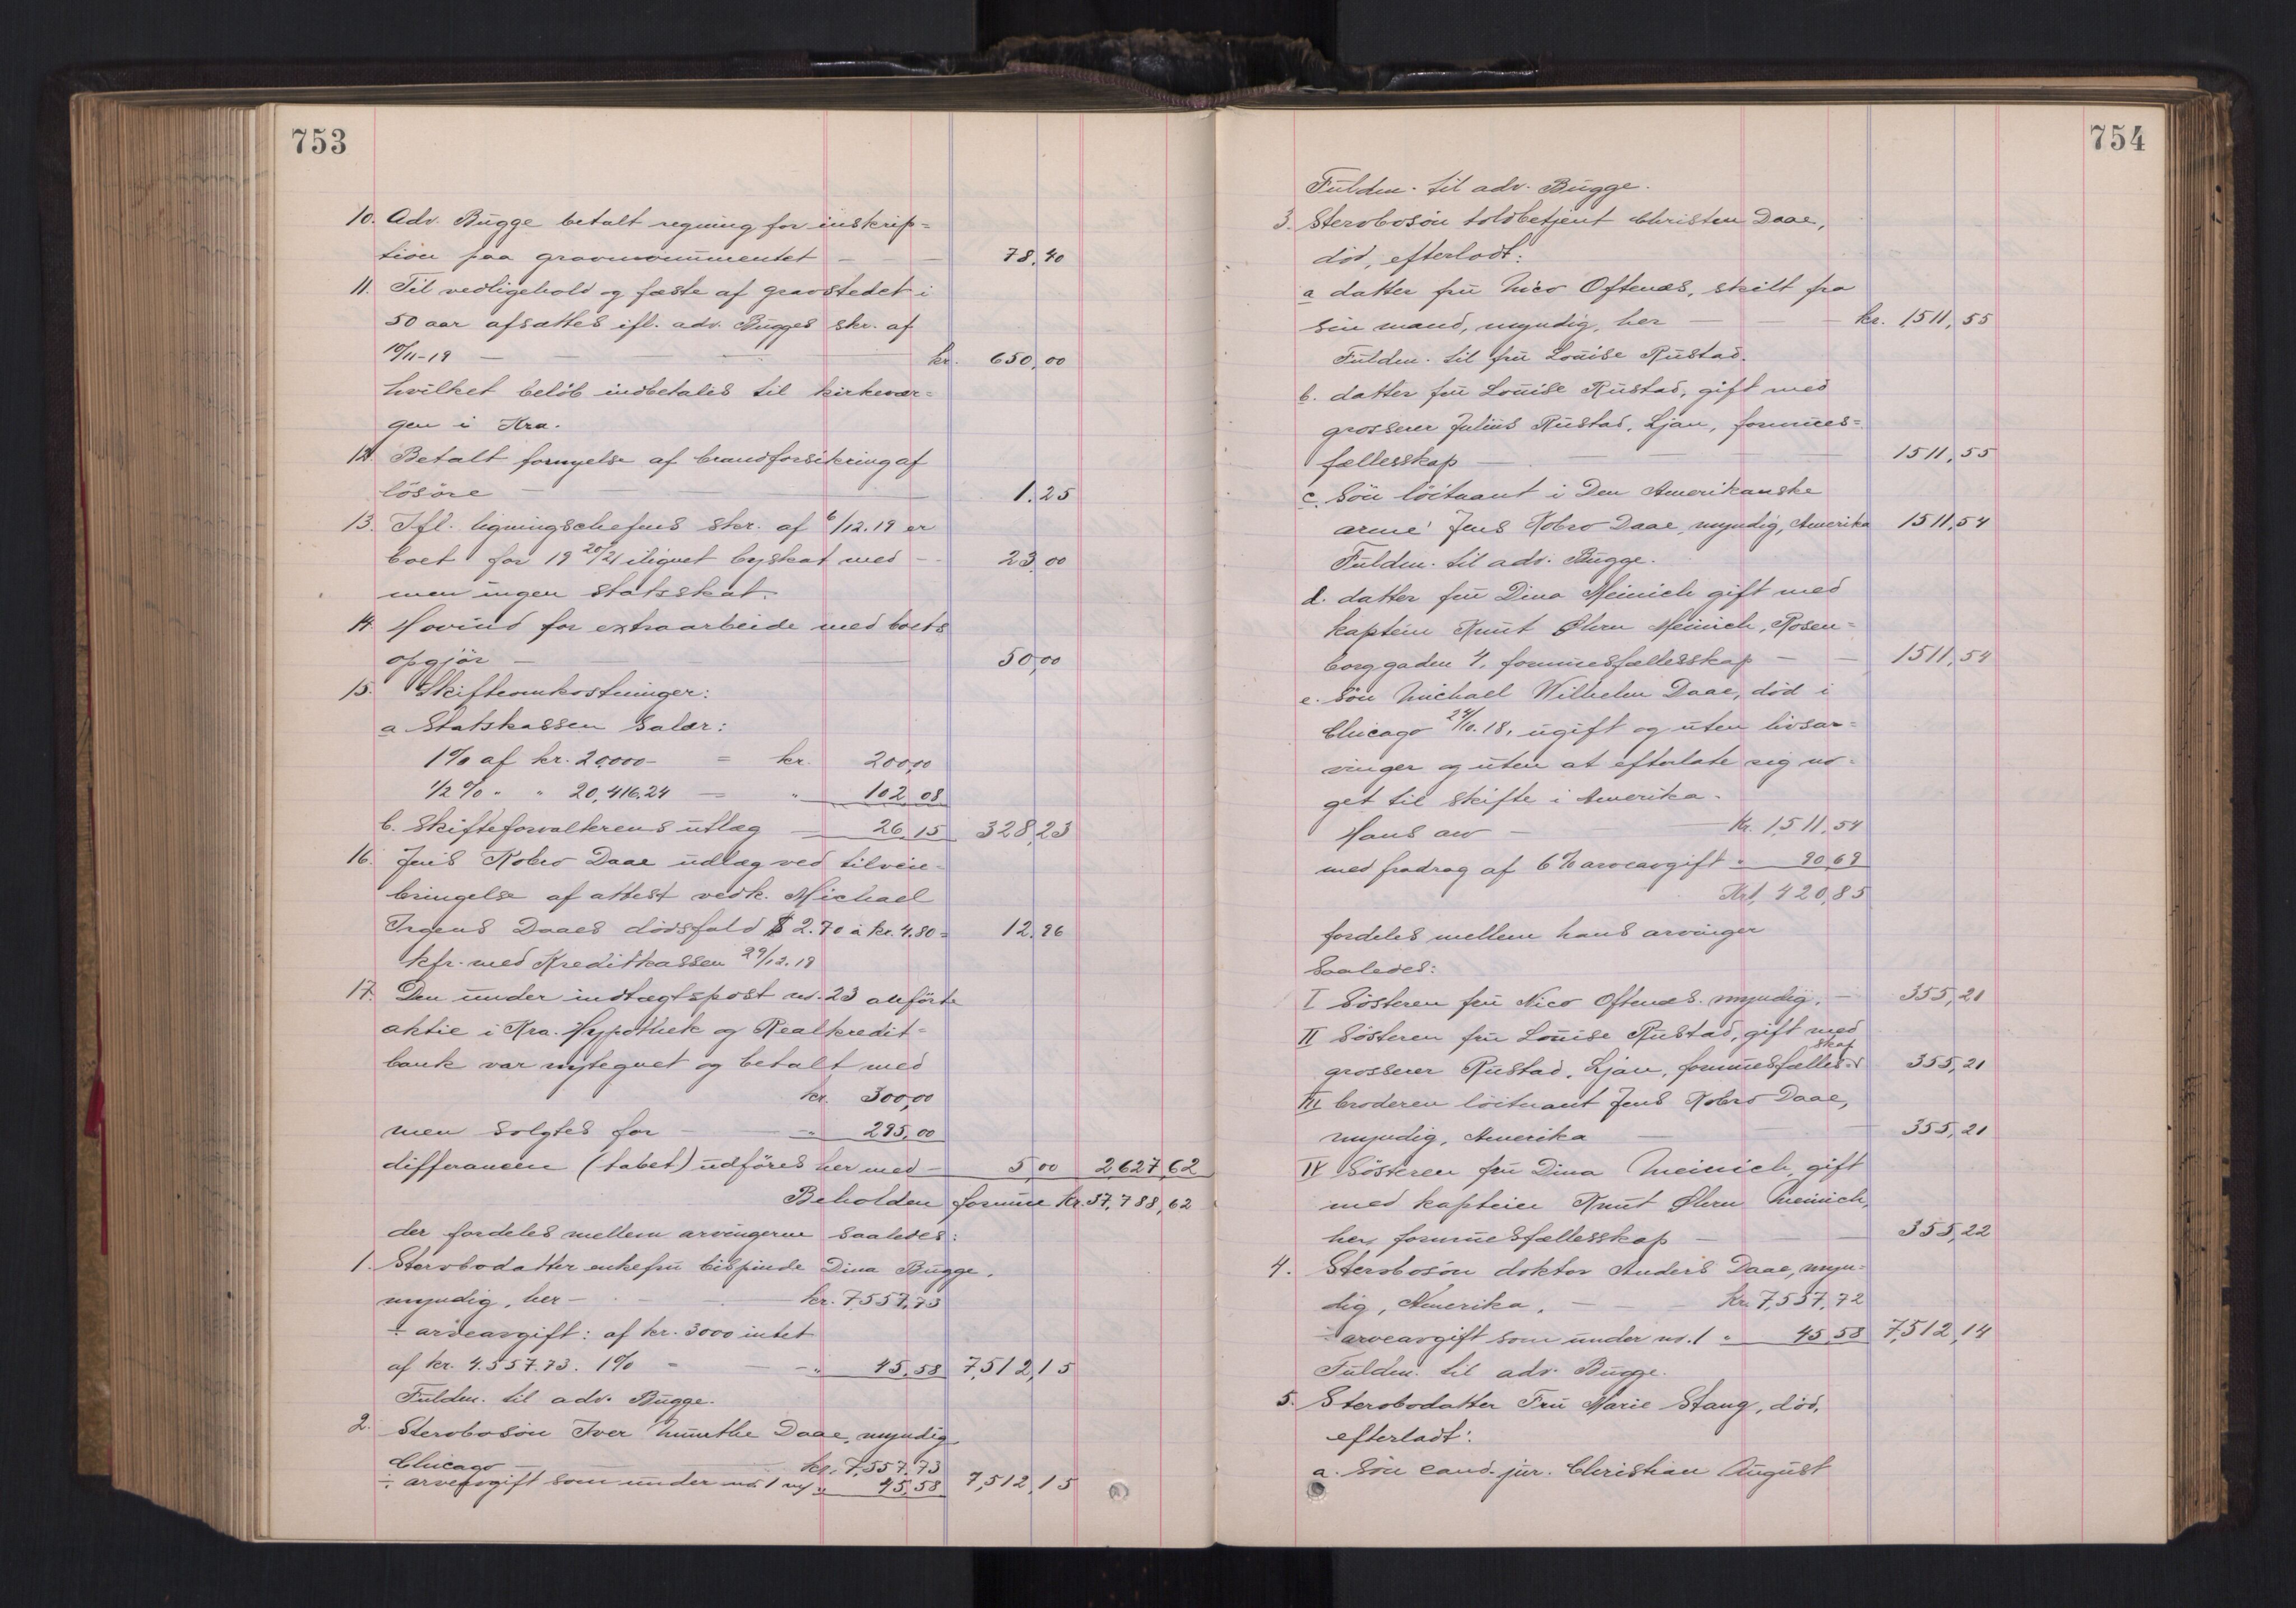 753
10. Adv. Bugge betalt regning for inskrip=
tion paa gravmonumentet — — 78,40
11. Til vedligehold og fæste af gravstedet i
50 aar afsættes ifl. adv. Bugges skr. af
10/11-19 — — — — kr. 650,00
hvilket beløb indbetales til kirkevær=
gen i Kra.
12. Betalt fornyelse af brandforsikring af
løsøre — — — 1.25
13. Ifl. ligningschefens skr. af 6/12.19 er
boet for 19 20/21 ilignet byskat med — 23,00
men ingen statsskat.
14. Hovind for extraarbeide med boets
opgjør — — — 50,00
15. Skifteomkostninger:
a Statskassen Salær:
1% af kr. 20,000- = kr. 200,00
1/2 % " " 20,416.24 — " 102,08
b. Skifteforvalterens utlæg — 26,15 328,23
16. Jens Kobro Daae udlæg ved tilveie=
bringelse af attest vedk. Michael
Irgens Daaes dødsfald $ 2.70 à kr. 4.80 = 12.96
kfr. med Kreditkassen 29/12.19
17. Den under indtægtspost no. 23 anførte
aktie i Kra. Hypothek og Realkredit=
bank var nytegnet og betalt med
kr. 300,00
men solgtes for — — " 295,00
differancen (tabet) udføres her med — 5,00 2627,62
Beholden formue kr. 37,788,62
der fordeles mellem arvingerne saaledes:
1. Stervbodatter enkefru bispinde Dina Bugge,
myndig, her — — kr. 7557,73
÷ arveavgift: af kr. 3000 intet
af kr. 4.557.73. 1% — — " 45,58 7,512,15
Fuldm. til adv. Bugge.
2. Stervbosøn Iver Munthe Daae, myndig,
Chicago — — kr. 7,557,73
÷ arveavgift som under no. 1 " 45,58 7,512,15
754
Fuldm. til adv. Bugge.
3. Stervbosøn toldbetjent Christen Daae,
død, efterlodt:
a datter fru Nico Oftenæs, skilt fra
sin mand, myndig, her — — kr. 1,511,55
Fuldm. til fru Louise Rustad.
b. datter fru Louise Rustad, gift med
grosserer Julius Rustad, Ljan, formues=
fællesskap — — — — 1511,55
c. Søn løitnant i Den Amerikanske
armé Jens Kobro Daae, myndig, Amerika 1511,54
Fuldm. til adv. Bugge.
d. datter fru Dina Meinich gift med
kaptein Knut Øhrn Meinich, Rosen=
borggaden 4, formuesfællesskap — — 1511,54
e. Søn Michael Wilhelm Daae, død i
Chicago 24/10.18, ugift og uten livsar=
vinger og uten at efterlate sig no=
get til skifte i Amerika.
Hans arv — — Kr. 1,511,54
med fradrag af 6% arveavgift " 90,69
Kr. 1,420,85
fordeles mellem hans arvinger
saaledes:
I Søsteren fru Nico Oftenæs. myndig. — 355,21
II Søsteren fru Louise Rustad, gift med
grosserer Rustad, Ljan, formuesfælles=skap 355,21
III broderen løitnant Jens Kobro Daae,
myndig, Amerika — — 355,21
IV Søsteren fru Dina Meinich, gift
med kaptein Knut Øhrn Meinich,
her, formuesfællesskap — — 355,22
4. Stervbosøn doktor Anders Daae, myn=
dig, Amerika. — — Kr. 7,557,72
÷ arveavgift som under no. 1 " 45,58 7,512,14
Fuldm. til adv. Bugge.
5. Stervbodatter Fru Marie Stang, død,
efterladt:
a. Søn cand. jur. Christian August